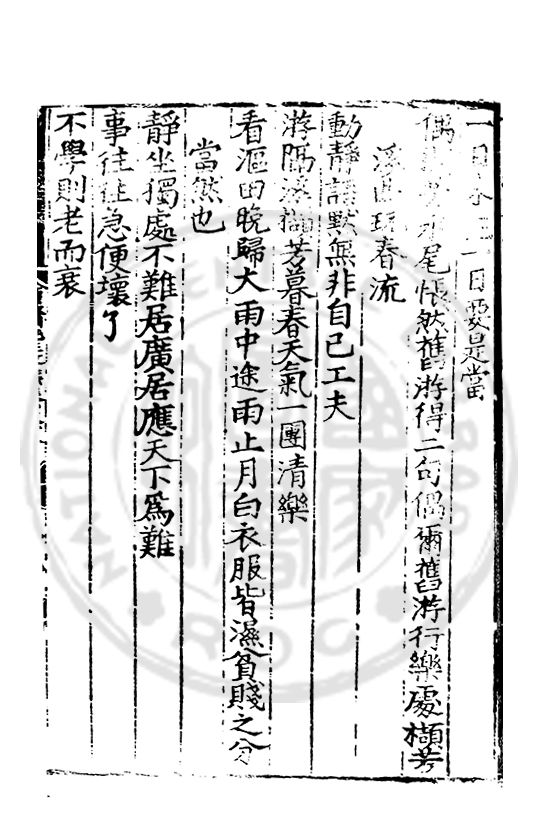 一日未死一日要是當
偶水尾悵然舊游得二句偶爾舊游行樂處擷芳
玩春流
動靜語默無非自己工夫
游隔溪擷芳暮春天氣一團清樂
看漚田晚歸大雨中途雨止月白衣服皆濕貧賤之分
當然也
靜坐獨處不難居廣居應天下為難
事往往急便壞了
不學則老而衰